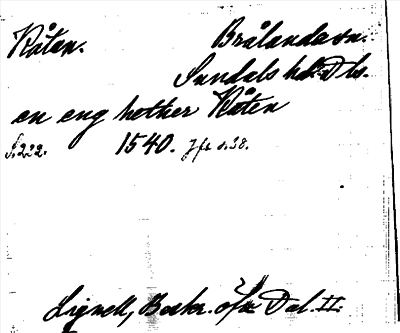 Råten. Brålanda sn.
Sundals hd. Dls.
en eng hether Råten
S. 22. 1540. Jfr s. 38.
Lignell, Beskr. öfv. Dal. II.